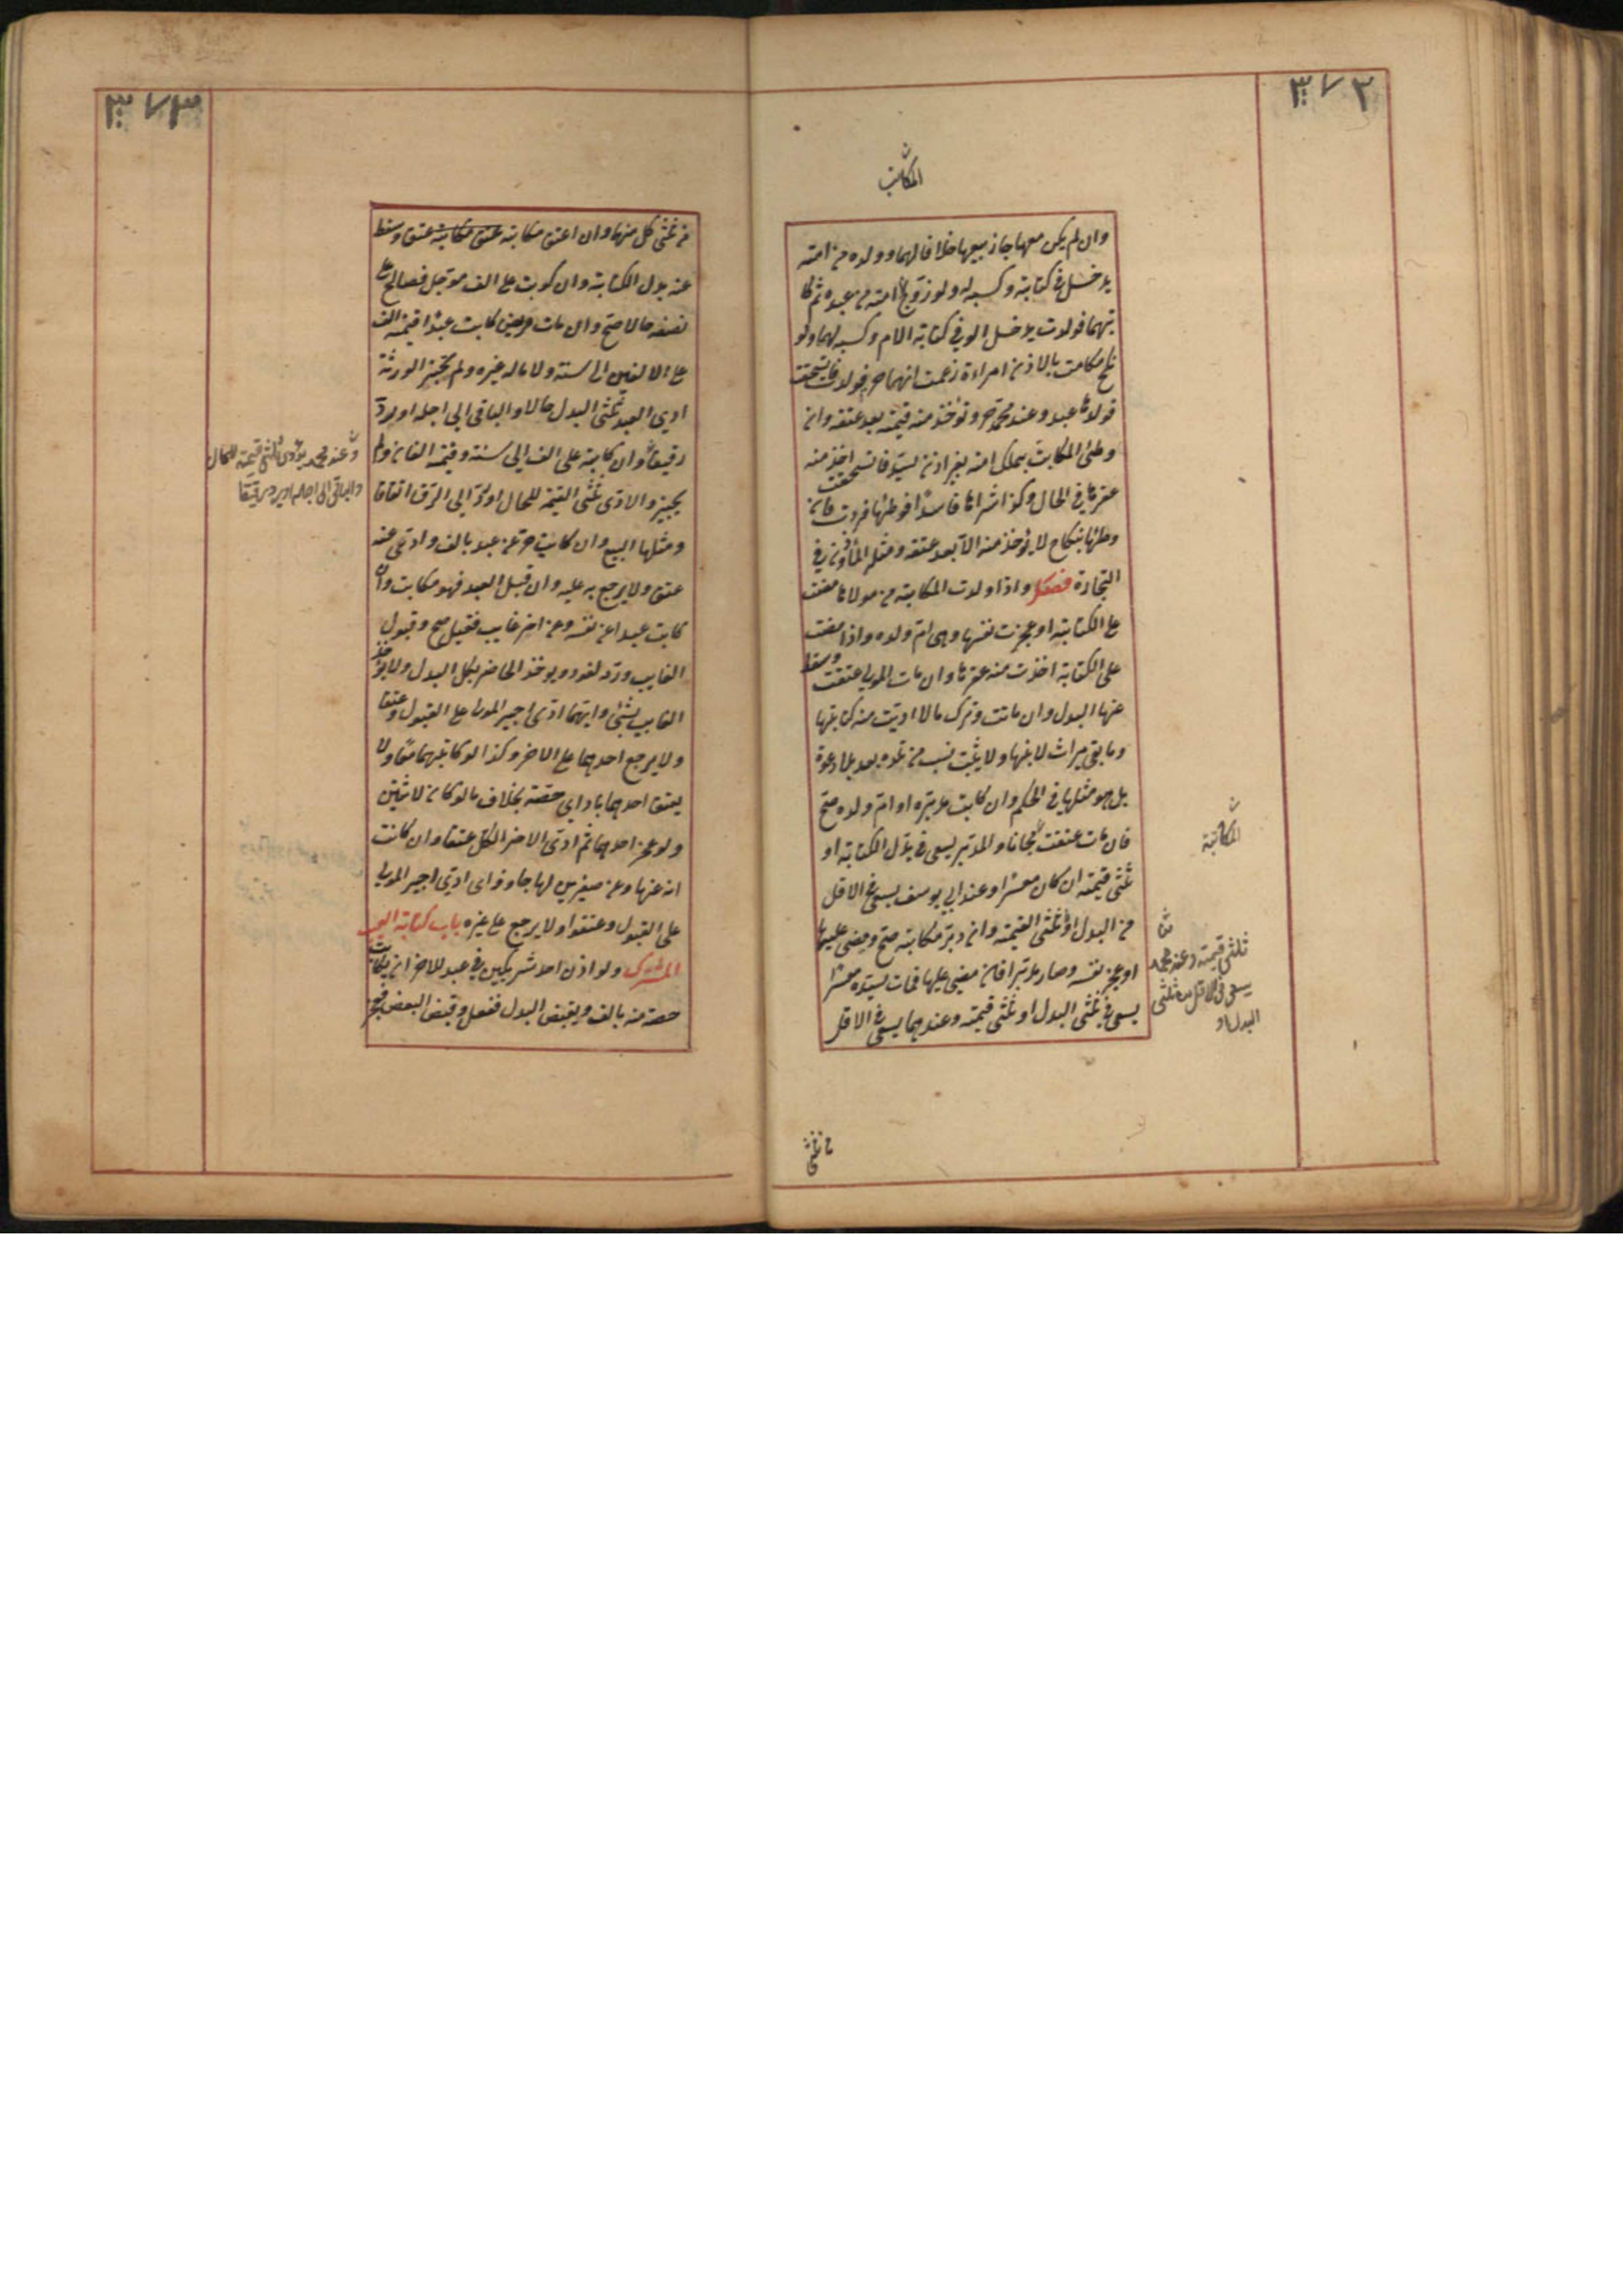 ٣٧٢
المكاتب
وان لم يكن معها جاز بيعها خلافا لهما وولده من امته
يدخل في كتابته وكسبه له ولو زوج امته من عبده ثم كا
تبهما فولدت يدخل الولد في كتابة الام وكسبه لها ولو
نكح مكاتب بالاذن امراءة زعمت انها حرة فولدت فاستحقت
فولدها عبد وعند محمد حر وتؤخذ منه قيمته بعد عتقه وان
وطئ المكاتب بملك امة بغير اذن لسيد فاستحقت اخذ منه
عقرها في الحال وكذا شراها فاسدًا فوطئها فردت فان
وطئها بنكاح لا يؤخذ منه الا بعد عتقه ومثله المأذون في
التجارة فصل واذا ولدت المكاتبة من مولاها مضت
على الكتابة او عجزت نفسها وهى ام ولده واذا مضت
على الكتابة اخذت منه عقرها وان مات المولى عتقت وسقط
عنها البدل وان ماتت وترك مالا اديت منه كتابتها
وما بقى ميراث لابنها ولا يثبت نسب من تلده بعد بلا دعوة
بل هو مثلها في الحكم وان كاتب مدبره او ام ولده صح
فان مات عتقت مجانا والمدبر يسعى في بدل الكتابة او
ثلثى قيمته ان كان معسرا وعند ابى يوسف يسعى في الاقل
من البدل او ثلثى القيمة وان دبر مكاتبه صح ومضى عليها
او عجز نفسه وصار مدبرا فان مضى عليها فمات لسيده معسرا
يسعى في ثلثى البدل او ثلثى قيمته وعندهما يسعى في الاقل
المكاتبة
ثلثى قيمته وعند محمد
يسعى في الاقل من ثلثى
البدل او
من ثلثى
٣٧٣
من ثلثى كل منهما وان اعتق مكاتبه عتق مكاتبه عتق وسقط
عنه بدل الكتابة وان كوتب على الف مؤجل فصالح على
نصفه حالا صح وان مات مريض كاتب عبدًا قيمته الف
على الالفين الى سنة ولا مال له غيره ولم تجيز الورثة
ادى العبد ثلثى البدل حالا والباقى الى اجله او يرد
رقيقًا وان كاتبه على الف الى سنة وقيمته الفان ولم
يجيزوا لادى ثلثى القيمة للحال او رد الى الرق اتفاقا
ومثلها البيع وان كاتب حر عن عبد بالف وادى عنه
عتق ولا يرجع به عليه وان قبل العبد فهو مكاتب وان
كاتب عبد عن نفسه وعن اخر غايب فقبل صح وقبول
الغايب ورده لغو ويوخذ الحاضر بكل البدل ولا يوخذ
الغايب بشئ وايهما ادى اجبر المولى على القبول وعتقا
ولا يرجع احدهما على الاخر وكذا لو كاتبهما معًا ولا
يعتق احدهما باداى حصته بخلاف ما لو كان لاثنين
ولو عجز احدهما ثم ادى الاخر الكل عتقا وان كاتبت
امة عنها وعن صغيرين لها جاز واى ادى اجبر المولى
على القبول وعتقوا ولا يرجع على غيره باب كتابة العبد
المشترك ولو اذن احد شريكين في عبد للاخر ان يكاتب
حصته منه بالف ويقبض البدل ففعل وقبض البعض فعجز
وعند محمد يؤدى ثلثى قيمته للحال
والباقى الى اجله او يرد رقيقا